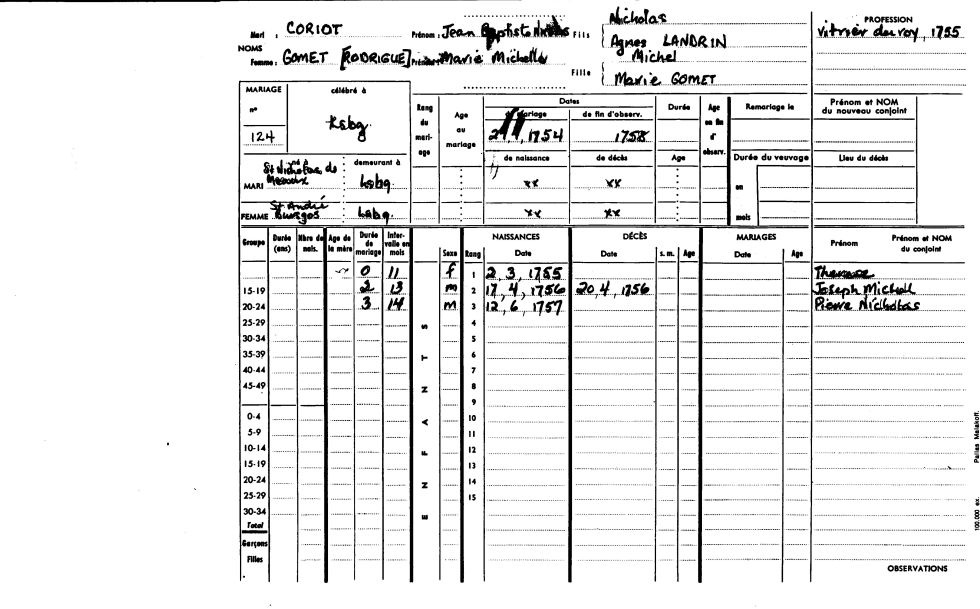 Mari : CORIOT Prénom : Jean Baptiste Nicolas Fils Nicholas PROFESSION
NOMS Agnes LANDRIN vitrier du roy, 1755
Femme : GOMET [RODRIGUE] Prénom : Marie Michelle Fille Michel
Marie GOMET
MARIAGE célébré à Rang du mariage Age au mariage Dates Durée Age en fin d'observ. Remariage le Prénom et NOM du nouveau conjoint
n° Lsbg. de mariage de fin d'observ.
124 1754 1758
né à demeurant à de naissance de décès Age Durée du veuvage Lieu du décès
MARI St Nicholas de Lsbg. xx xx en
FEMME St André Burgos Lsbg. xx xx mois
Groupe Durée (ans) Nbre de nais. Age de la mère Durée de mariage Intervalle en mois ENFANTS Sexe Rang NAISSANCES Date DÉCÈS Date s. m. Age MARIAGES Date Age Prénom Prénom et NOM du conjoint
0 11 f 1 2, 3, 1755 Therese
15-19 2 13 m 2 17, 4, 1756 20, 4, 1756 Joseph Michell
20-24 3 14 m 3 12, 6, 1757 Pierre Nicholas
25-29 4
30-34 5
35-39 6
40-44 7
45-49 8
9
0-4 10
5-9 11
10-14 12
15-19 13
20-24 14
25-29 15
30-34
Total
Garçons
Filles
OBSERVATIONS
100.000 ex. Pallas Malakoff.